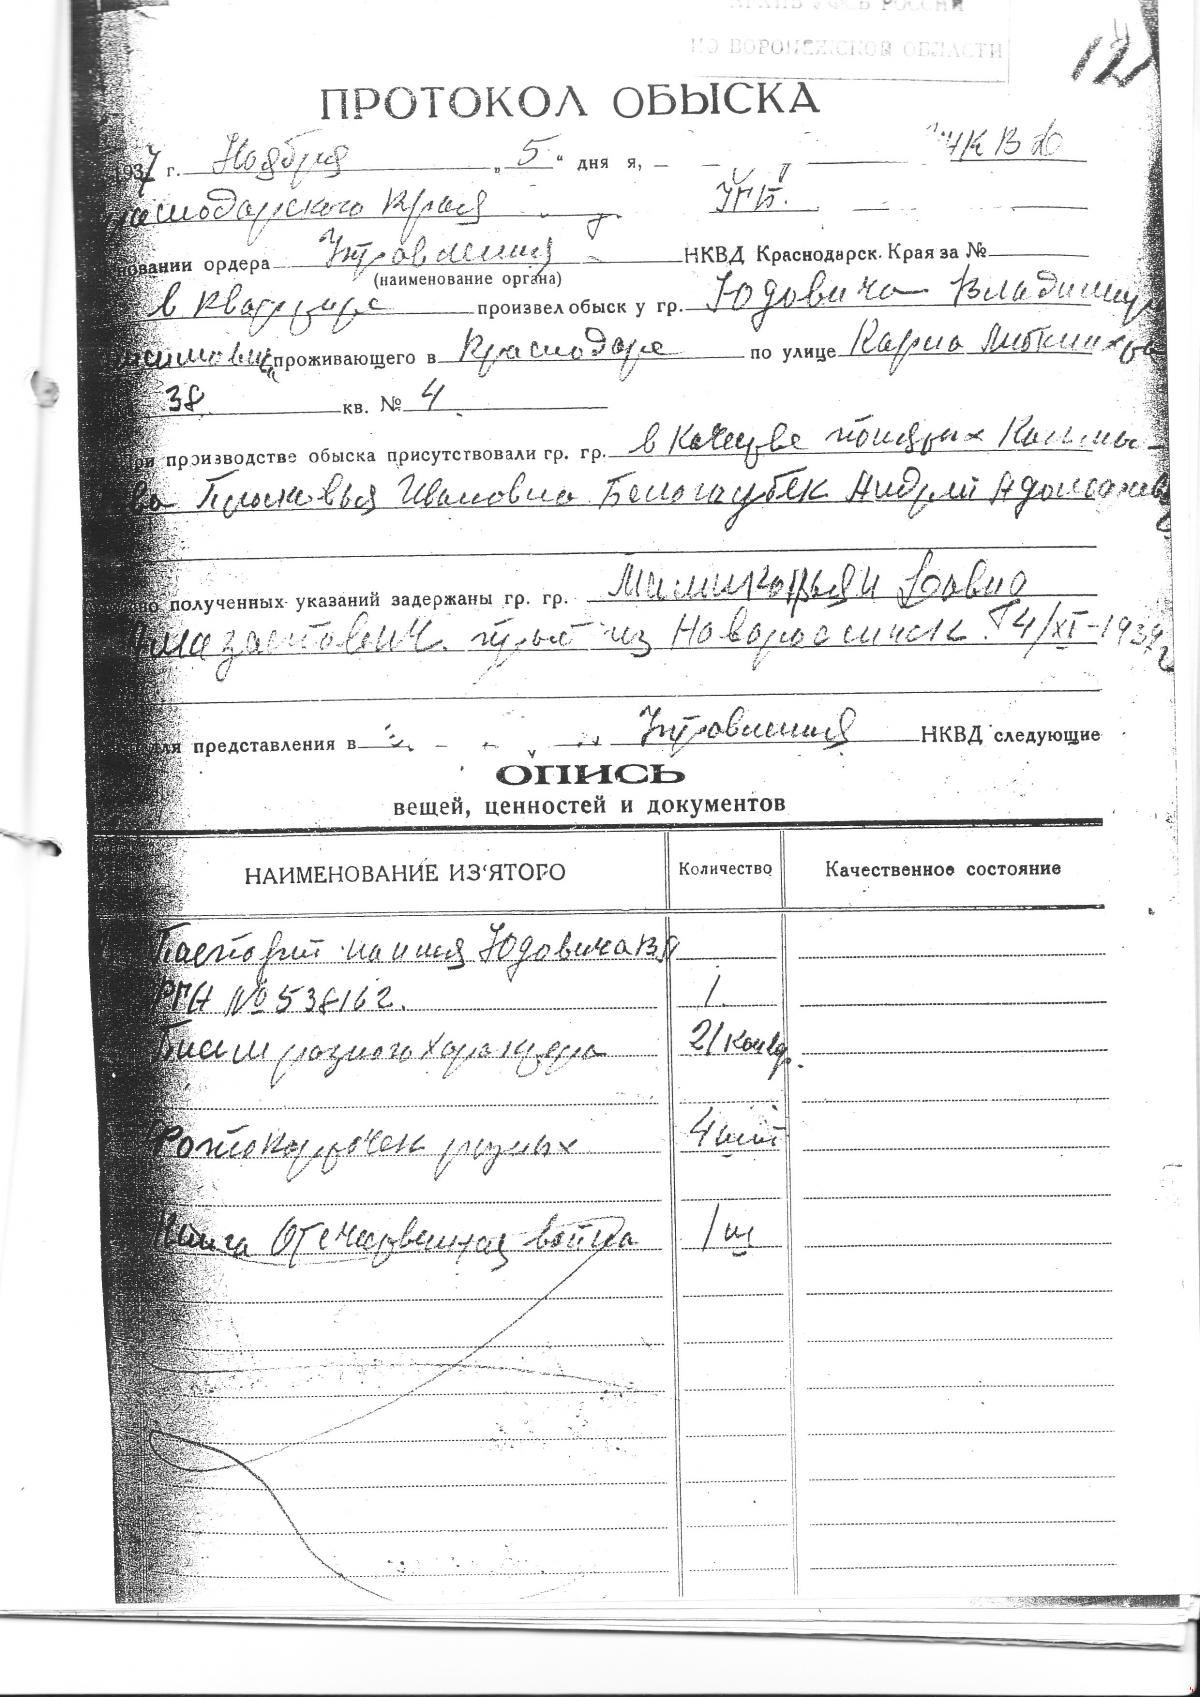 АРХИВ УФСБ РОССИИ
ПО ВОРОНЕЖСКОЙ ОБЛАСТИ
12
ПРОТОКОЛ ОБЫСКА
1937 г. Ноября „5“ дня я, НКВД
Краснодарского Края УГБ.
новании ордера Управления НКВД Краснодарск. Края за №
(наименование органа)
в квартире произвел обыск у гр. Юдовича Владимир
проживающего в Краснодаре по улице Карла Либкнехта
38 кв. № 4
ри производстве обыска присутствовали гр. гр. в качестве понятых
ва Прасковья Ивановна Андрей Адольфович
но полученных указаний задержаны гр. гр.
из Новороссийск. 4/XI-1937 г
для представления в Управления НКВД следующие
ОПИСЬ
вещей, ценностей и документов
НАИМЕНОВАНИЕ ИЗ‘ЯТОГО Количество Качественное состояние
Паспорт на имя Юдовича ВЯ
№ 538162. 1.
Писем разного характера 21 конвер.
Фотокарточек разных 4 шт
Книга Отечественная война 1 ш